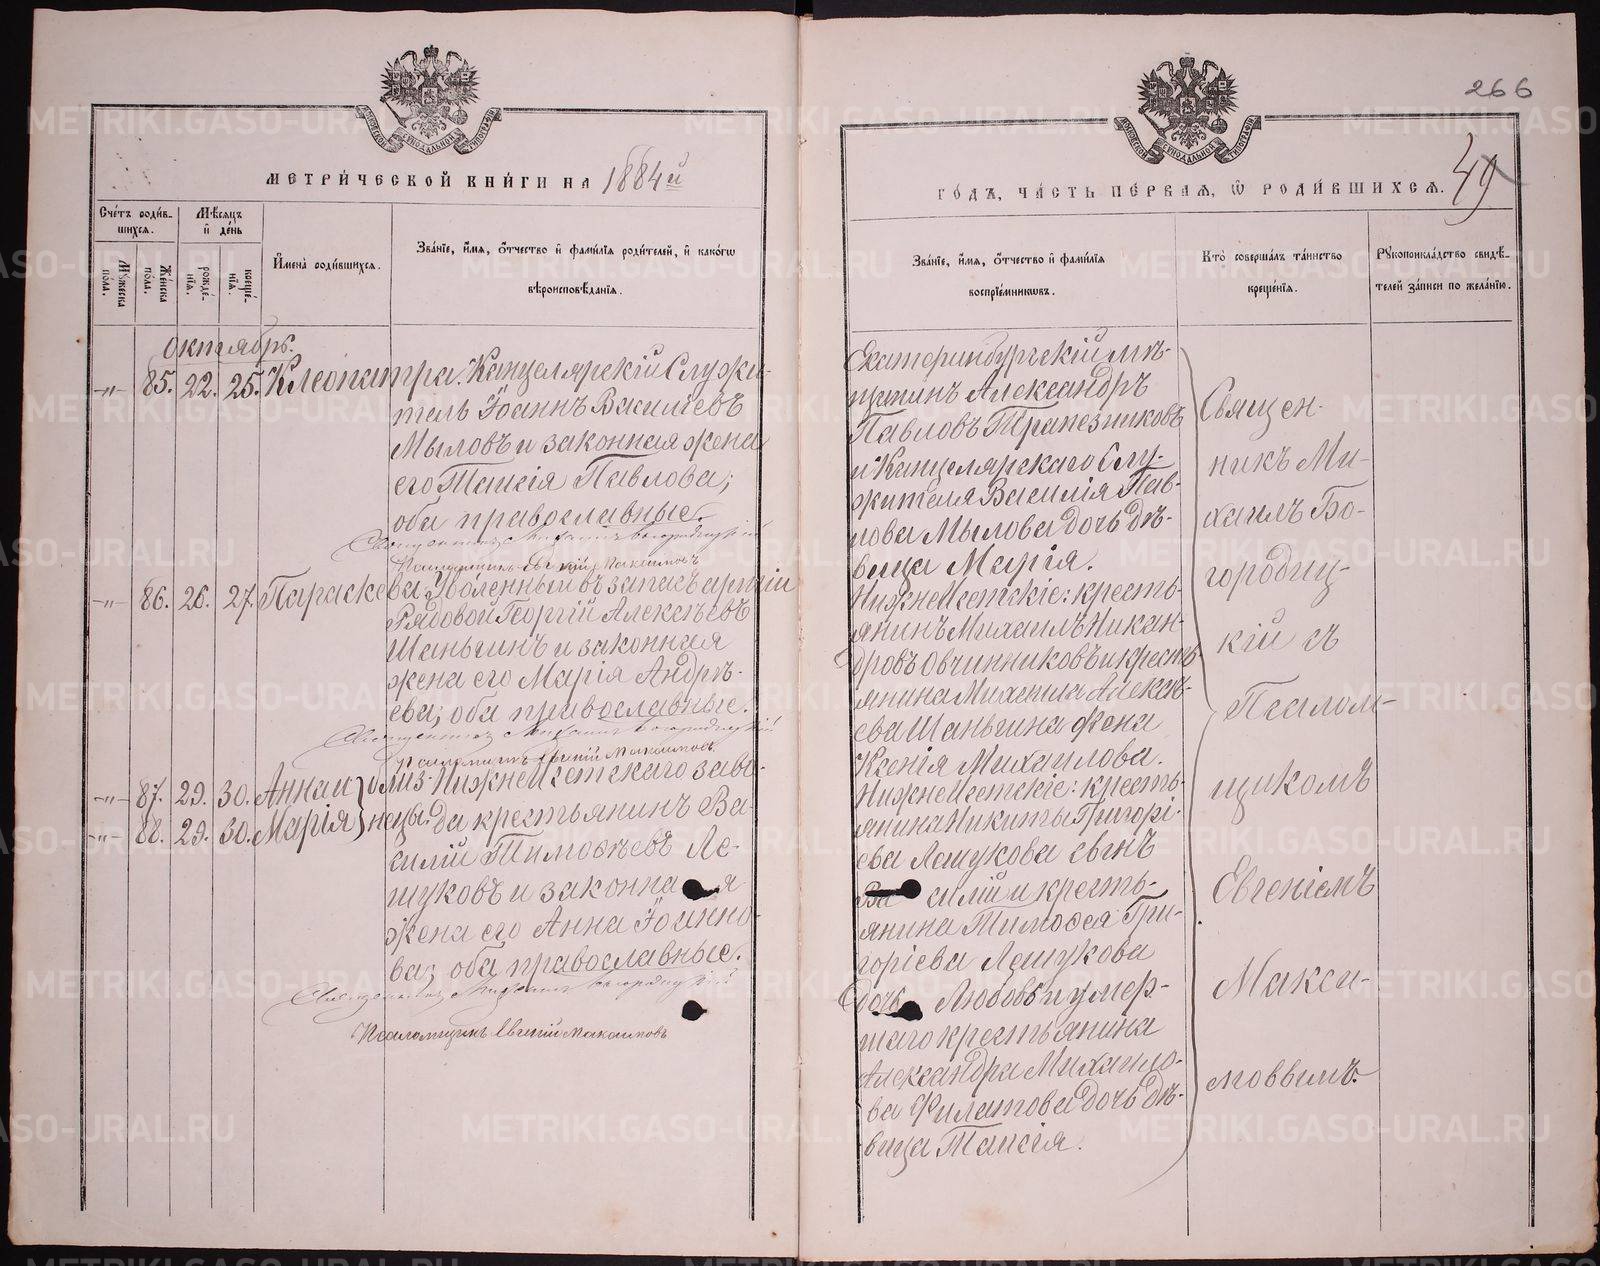 МЕТРИЧЕСКОЙ КНИГИ НА 1884й
Счетъ родив-
шихся.
Мѣсяцъ
и день
Мужеска
пола.
Женска
пола.
рожде-
нія.
креще-
нія.
Имена родившихся.
Званіе, имя, отчество и фамилія родителей, и какогѡ
вѣроисповѣданія.
Октябрь.
-"- 85. 22. 25. Клеопатра. Канцелярскій Служи-
тель Іоаннъ Васильевъ
Мыловъ и законная жена
его Таисія Павлова;
оба православные.
Священникъ Михаилъ Богородицкій
Псаломщикъ Евгеній Максимовъ
-"- 86. 26. 27. Параскева. Уволенный въ запасъ арміи
Рядовой Георгій Алексѣевъ
Шаньгинъ и законная
жена его Марія Андрѣ-
ева; оба православные.
Священникъ Михаилъ Богородицкій
Псаломщикъ Евгеній Максимовъ
-"- 87. 29. 30. Анна и близ- Нижнеисетскаго заво-
-"- 88. 29. 30. Марія нецы. да крестьянинъ Ва-
силій Тимоѳеевъ Ле-
щуковъ и законная
жена его Анна Іоанно-
ва; оба православные.
Священникъ Михаилъ Богородицкій
Псаломщикъ Евгеній Максимовъ
266
ГОДЪ, ЧАСТЬ ПЕРВАЯ, Ѡ РОДИВШИХСЯ. 49
Званіе, имя, отчество и фамилія
воспріемниковъ.
Кто совершалъ таинство
крещенія.
Рукоприкладство свидѣ-
телей записи по желанію.
Екатеринбургскій мѣ-
щанинъ Александръ
Павловъ Трапезниковъ
и Канцелярскаго Слу-
жителя Василія Пав-
лова Мылова дочь дѣ-
вица Марія.
Нижнеисетскіе: кресть-
янинъ Михаилъ Никан-
дровъ Овчинниковъ и кресть-
янина Михаила Алексѣ-
ева Шаньгина жена
Ксенія Михаилова.
Нижнеисетскіе: кресть-
янина Никиты Григорі-
ева Лещукова сынъ
Василій и кресть-
янина Тимоѳея Гри-
горіева Лещукова
дочь Любовь и умер-
шаго крестьянина
Александра Михаило-
ва Филатова дочь дѣ-
вица Таисія.
Священ-
никъ Ми-
хаилъ Бо-
городиц-
кій съ
Псалом-
щикомъ
Евгеніемъ
Макси-
мовымъ.
METRIKI.GASO-URAL.RU